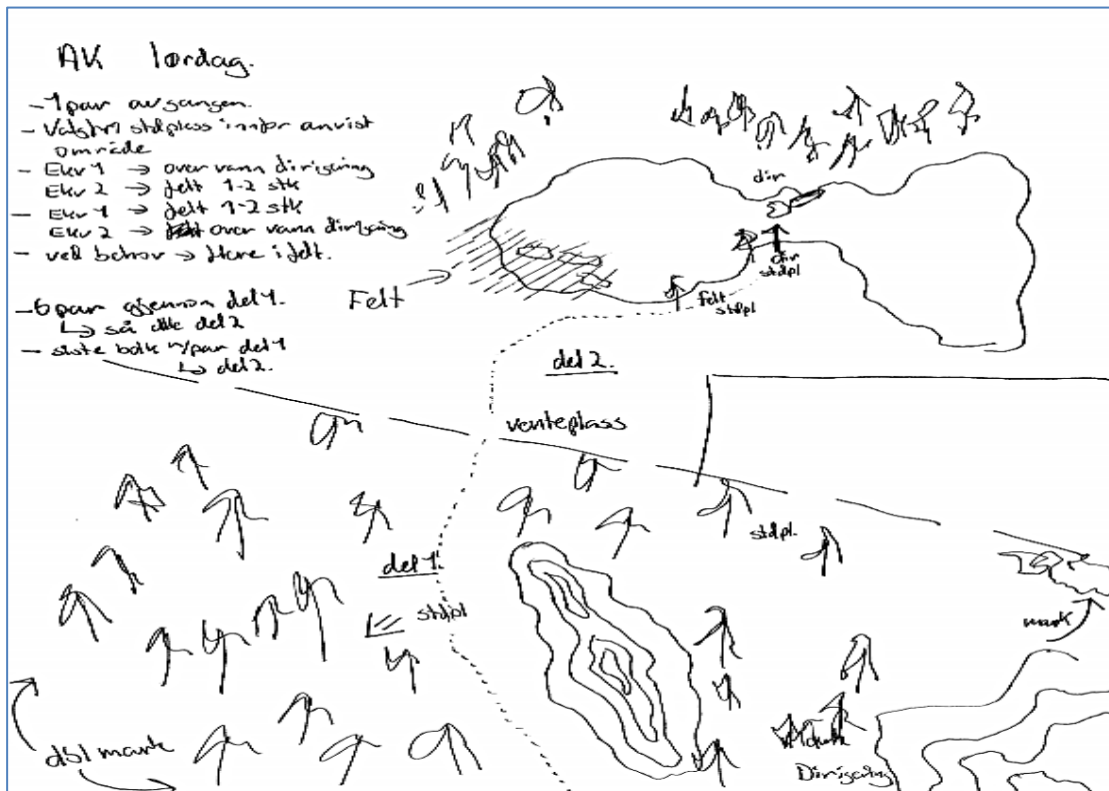 AK lørdag.
- 1 par avgangen.
- Valgfri stdplass innfor anvist
område
- Ekv 1 → over vann dirigering
Ekv 2 → felt 1-2 stk
- Ekv 1 → felt 1-2 stk
Ekv 2 → over vann dirigering
- ved behov → flere i felt.
- 6 par gjennom del 1.
↳ så del 2
- siste bolk par del 1
↳ del 2.
dir
dir
stdpl
Felt
felt
stdpl
del 2.
venteplass
stdpl.
del 1.
stdpl
mark
dbl mark
Dirigering